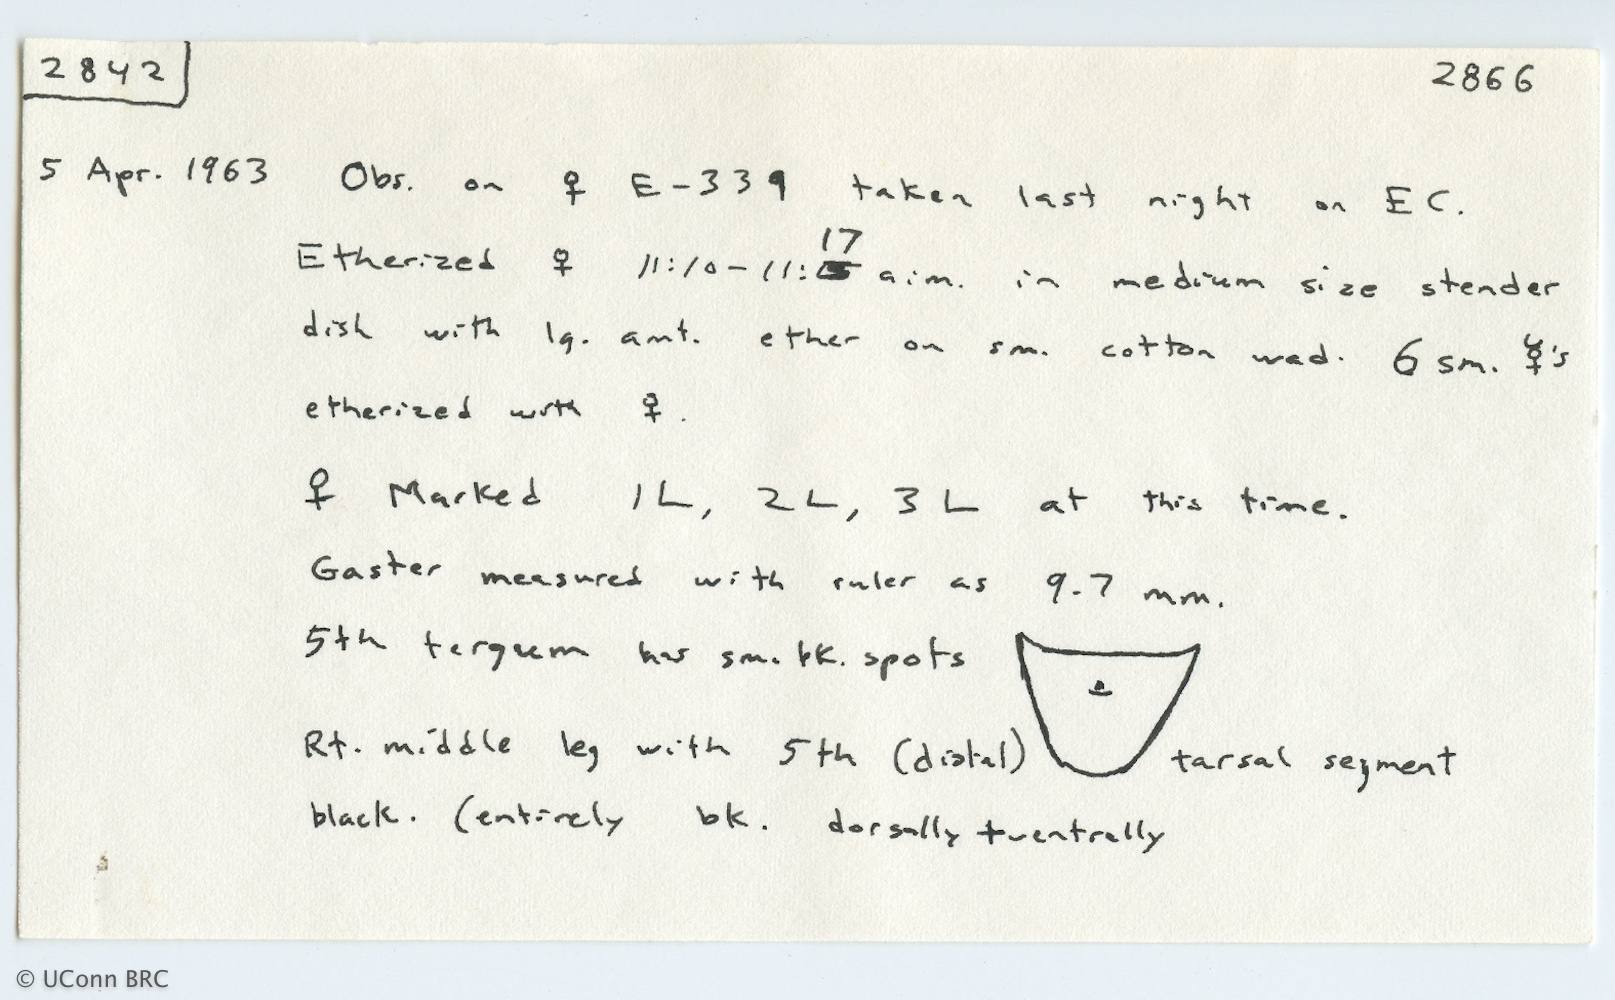 2842
2866
5 Apr. 1963 Obs. on ♀ E-339 taken last night on EC.
Etherized ♀ 11:10-11:17 a.m. in medium size stender
dish with lg. amt. ether on sm. cotton wad. 6 sm. ☿'s
etherized with ♀.
♀ Marked 1L, 2L, 3L at this time.
Gaster measured with ruler as 9.7 mm.
5th tergum has sm. bk. spots
Rt. middle leg with 5th (distal) tarsal segment
black. (entirely bk. dorsally + ventrally
© UConn BRC